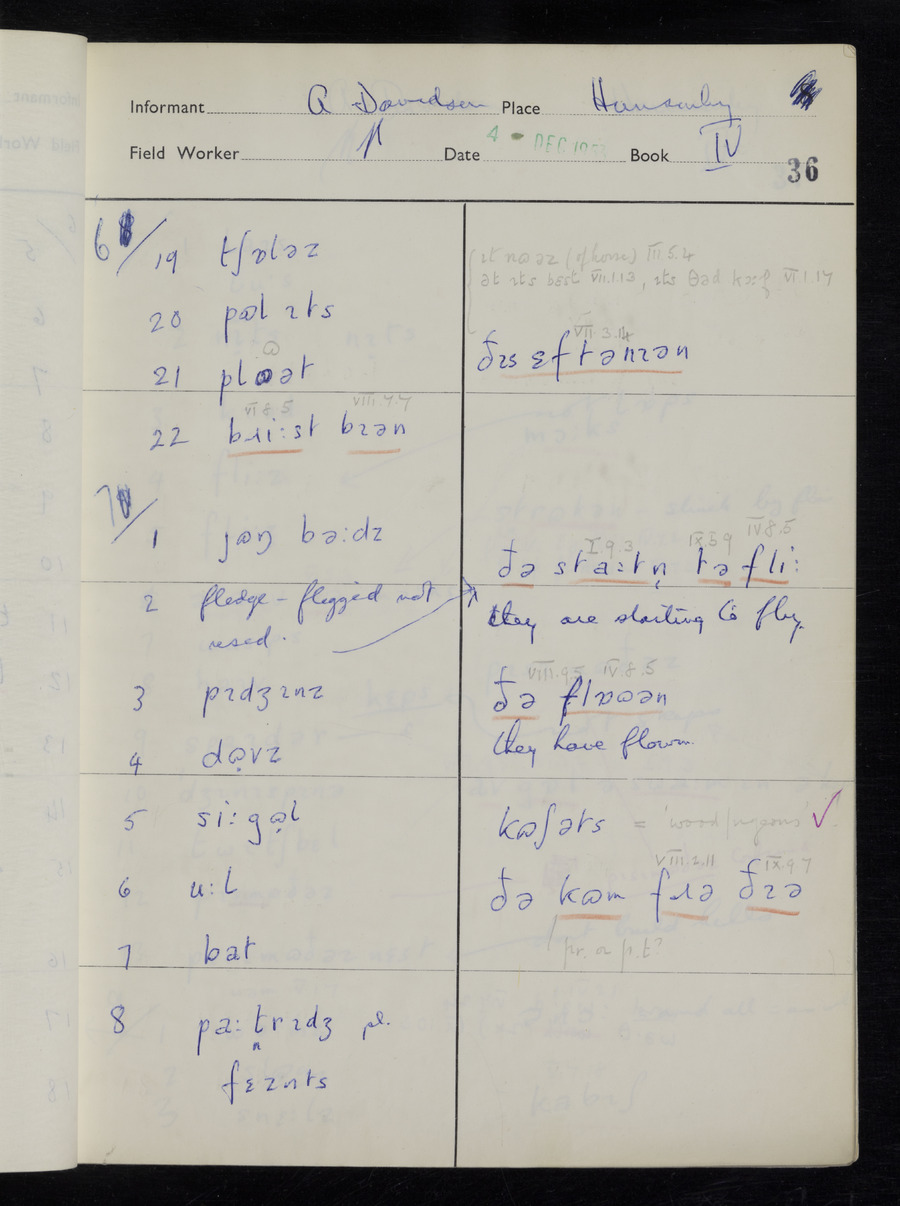 Informant A Davidson Place Hunsonby
Field Worker Date 4 - DEC 195 Book IV
36
6 / 19 tʃɒləz
20 pɷl ɪts
21 plɷət
ɷ
22 bɹi:st bɹən
VI 8.5 VIII.7.7
7 / 1 jɷŋ bə:dz
2 fledge - flegged not
used.
3 pɪdʒɪnz
4 dɷ̣vz
5 si:gɷ̣l
6 u:l
7 bat
8 pa:t̪rɪdʒ pl.
fɛznts
ɪt nɷəz (of horse) III 5.4
ət ɪts best VII.1.13, ɪts θəd VI.1.17
VII.3.14
ðɪs ɛftənɪən
I.9.3 IX 5 9 IV 8.5
ðə sta:tn̩ tə fli:
they are starting to fly.
VIII.9.5 IV.8.5
ðə flɒɷən
they have flown.
kɷʃəts = 'wood/pigeons' ✓
VIII.2.11 IX.9 7
ðə kɷm fɹə ðɪə
pr. or p.t?